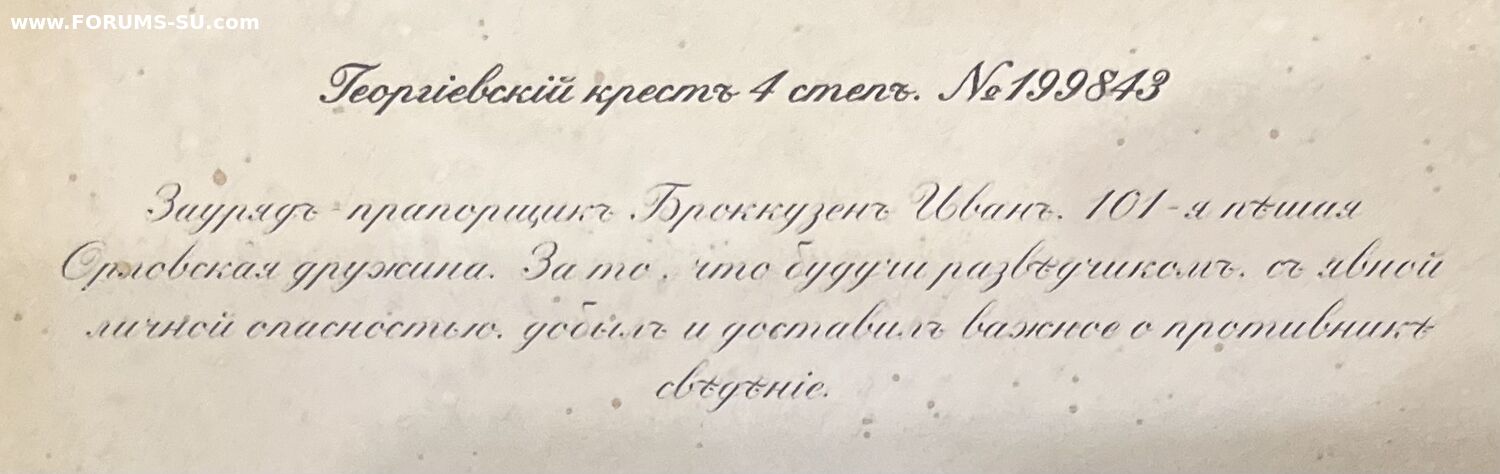 www.FORUMS-SU.com
Георгіевскій крестъ 4 степ. №199843
Заурядъ-прапорщикъ Броккузенъ Иванъ. 101-я пѣшая
Орловская дружина. За то, что будучи развѣдчикомъ. съ явной
личной опасностью. добылъ и доставилъ важное о противникѣ
свѣдѣніе.